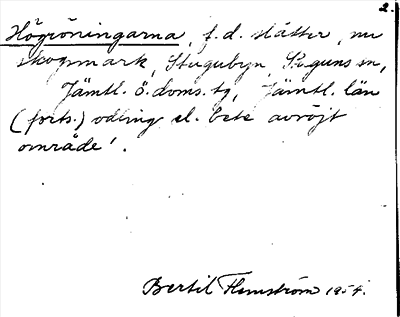 2.
Högröningarna, f.d. slåtter, nu
skogsmark, Stugubyn, Stuguns sn,
Jämtl. ö. doms. tg, Jämtl. län
(forts.) odling el. bete avröjt
område'.
Bertil Flemström 1954.